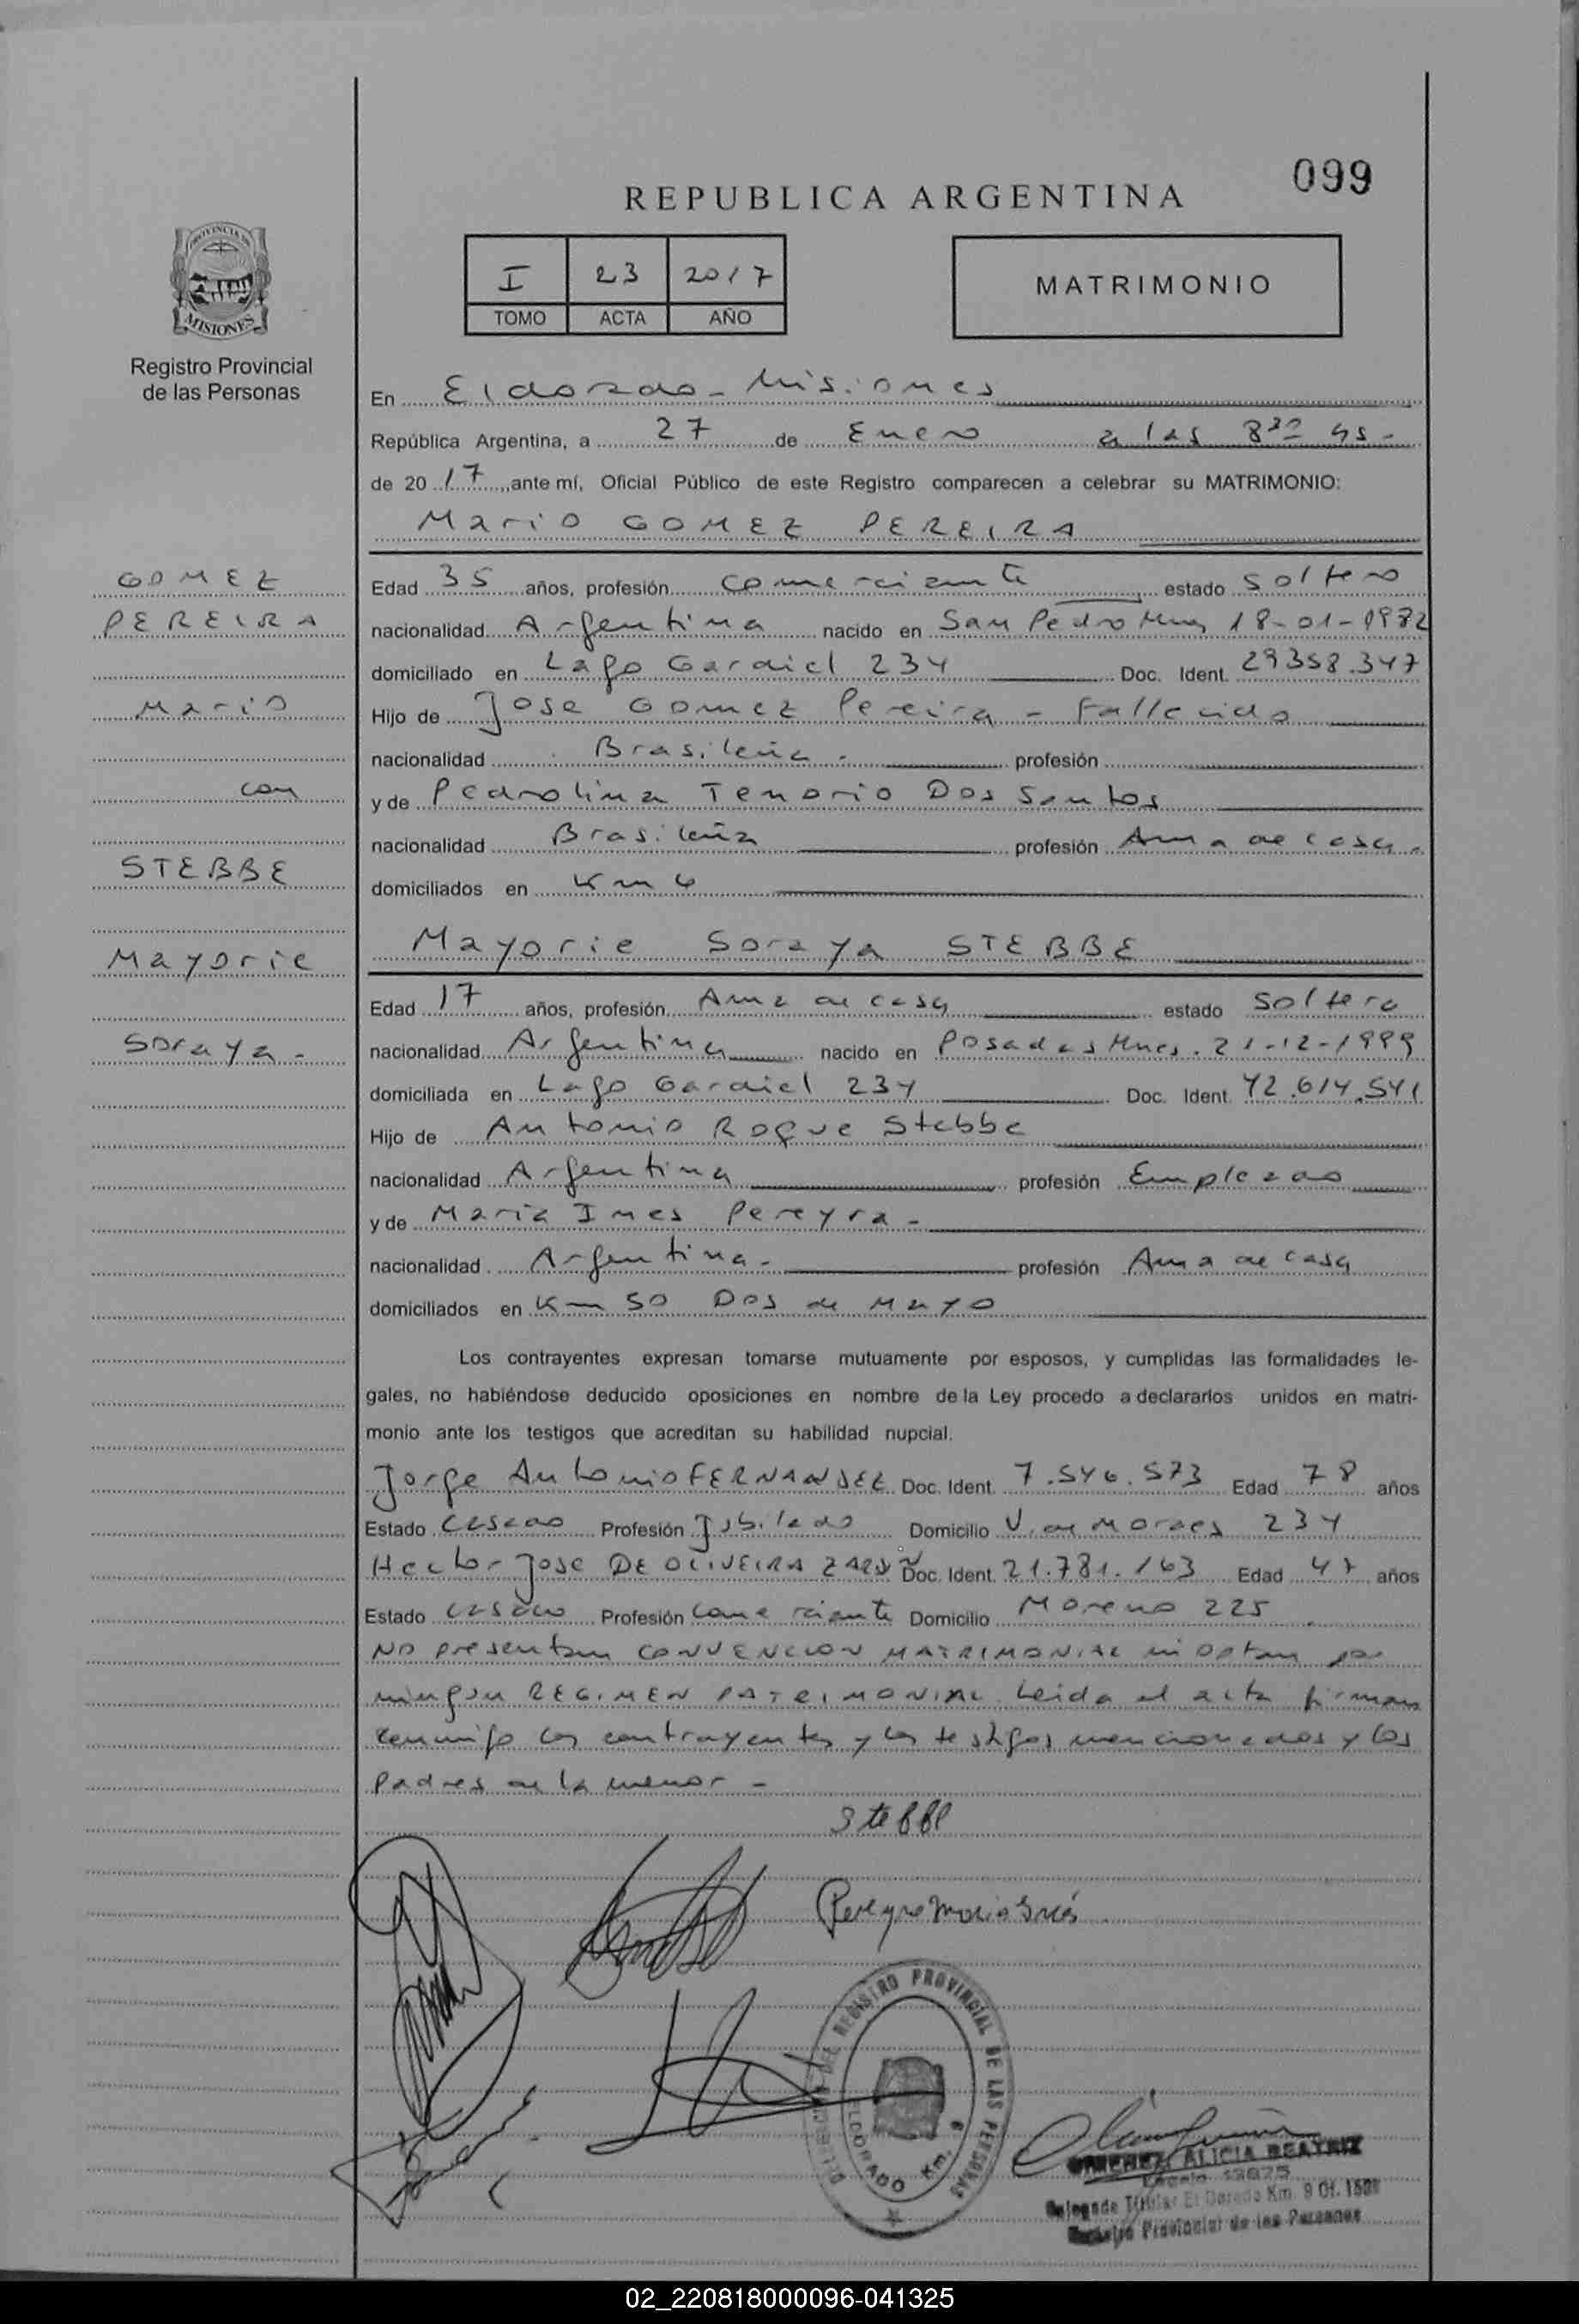 099
REPUBLICA ARGENTINA
PROVINCIA DE
MISIONES
Registro Provincial
de las Personas
I 23 2017
TOMO ACTA AÑO
MATRIMONIO
En Eldorado - Misiones
República Argentina, a 27 de Enero a las 8³⁰ hs -
de 20 17, ante mí, Oficial Público de este Registro comparecen a celebrar su MATRIMONIO:
Mario GOMEZ PEREIRA
GOMEZ
PEREIRA
Mario
con
STEBBE
Mayorie
Soraya -
Edad 35 años, profesión comerciante estado soltero
nacionalidad Argentina nacido en San Pedro Mnes 18-01-1982
domiciliado en Lago Cardiel 234 Doc. Ident. 29358.347
Hijo de Jose Gomez Pereira - Fallecido
nacionalidad Brasileña - profesión
y de Pedrolina Tenorio Dos Santos
nacionalidad Brasileña profesión Ama de casa.
domiciliados en Km 6
Mayorie Soraya STEBBE
Edad 17 años, profesión Ama de casa estado soltera
nacionalidad Argentina nacido en Posadas Mnes. 21-12-1999
domiciliada en Lago Cardiel 234 Doc. Ident. 42.614.541
Hijo de Antonio Roque Stebbe
nacionalidad Argentina profesión Empleado
y de Maria Ines Pereyra -
nacionalidad Argentina - profesión Ama de casa
domiciliados en Km 50 Dos de Mayo
Los contrayentes expresan tomarse mutuamente por esposos, y cumplidas las formalidades le-
gales, no habiéndose deducido oposiciones en nombre de la Ley procedo a declararlos unidos en matri-
monio ante los testigos que acreditan su habilidad nupcial.
Jorge Antonio FERNANDEZ Doc. Ident. 7.546.573 Edad 78 años
Estado casado Profesión Jubilado Domicilio V. de Moraes 234
Hector Jose DE OLIVEIRA Doc. Ident. 21.781.163 Edad 47 años
Estado casado Profesión comerciante Domicilio Moreno 225
No presentan CONVENCION MATRIMONIAL ni optan por
ningun REGIMEN PATRIMONIAL. Leida el acta firman
conmigo los contrayentes y los testigos mencionados y los
padres de la menor -
Stebbe
Pereyra Maria Inés
DEL REGISTRO PROVINCIAL DE LAS PERSONAS
ELDORADO Km.
GIMENEZ, ALICIA BEATRIZ
Delegada Titular El Dorado Km. 9 Of.
Registro Provincial de las Personas
02_220818000096-041325